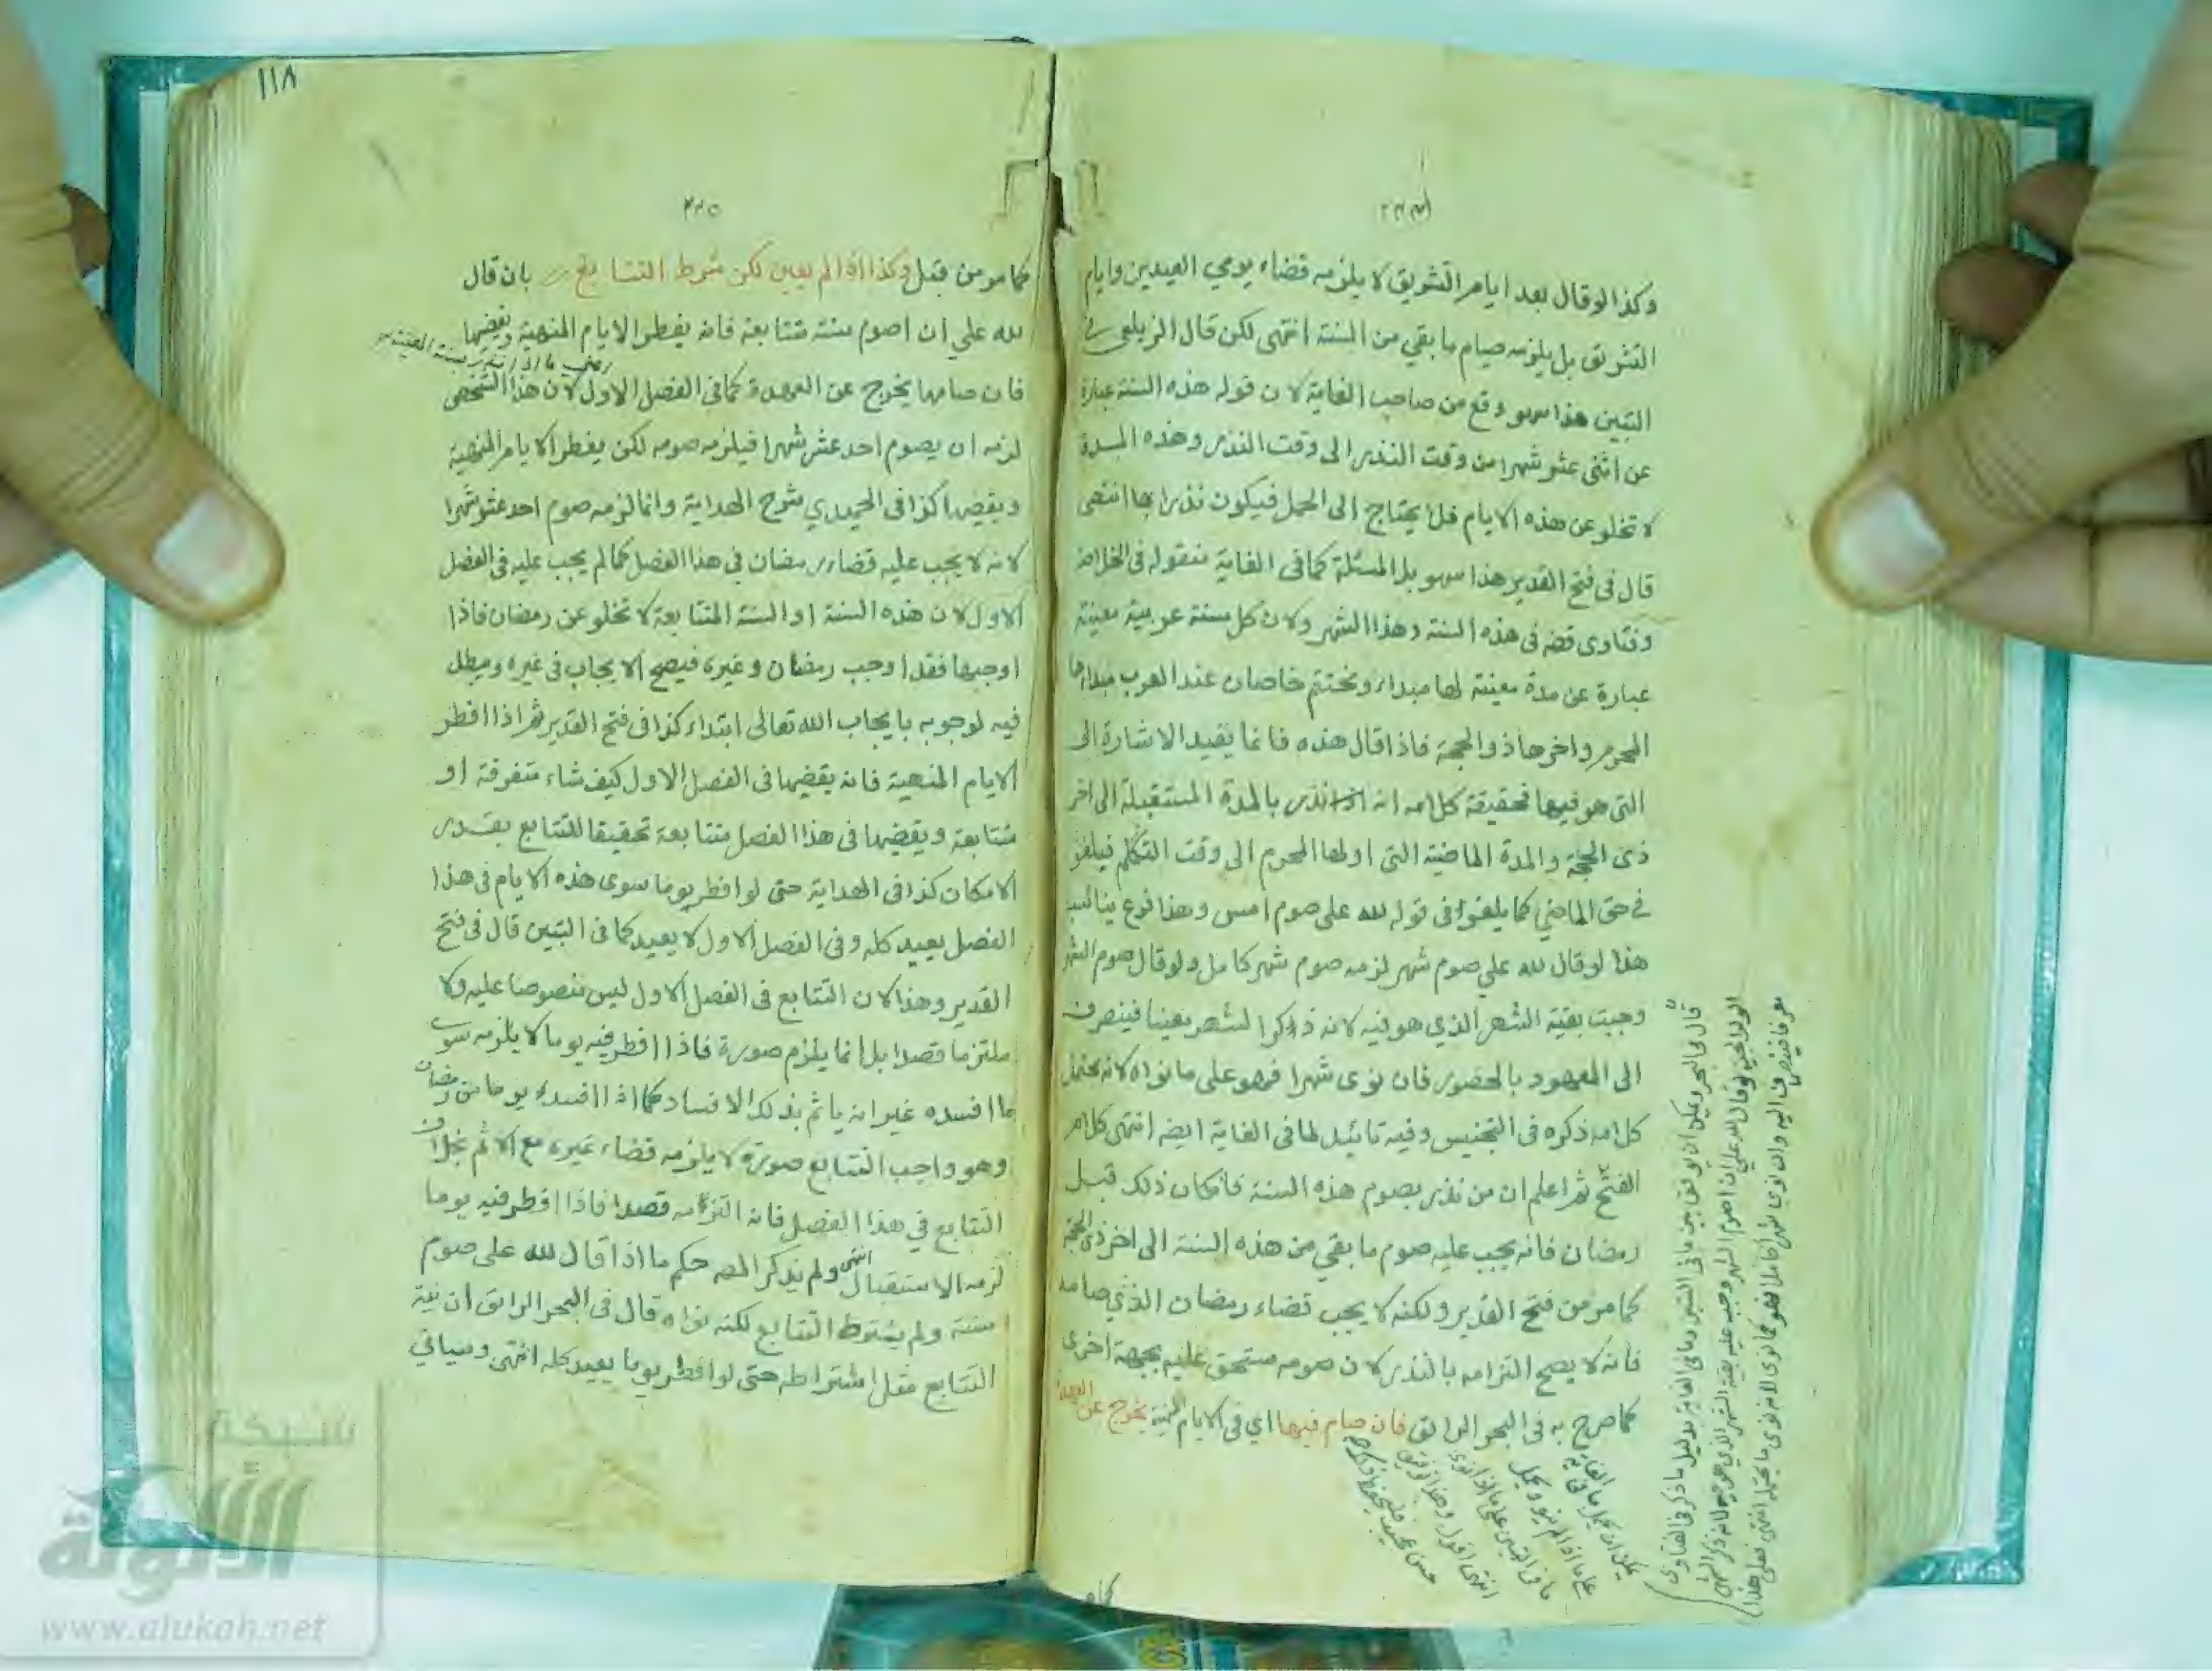 وكذا لو قال بعد ايام التشريق لا يلزمه قضاء يومي العيدين وايام
التشريق بل يلزمه صيام ما بقي من السنة انتهى لكن قال الزيلعي في
التبين هذا سهو وقع من صاحب الغاية لان قوله هذه السنة عبارة
عن اثنى عشر شهرا من وقت النذر الى وقت النذر وهذه المدة
لا تخلو عن هذه الايام فلا يحتاج الى الحمل فيكون نذرا بها انتهى
قال في فتح القدير هذا سهو بل المسئلة كما في الغاية منقولة في الخلاصة
وفتاوى قضه في هذه السنة وهذا الشهر ولان كل سنة عربية معينة
عبارة عن مدة معينة لها مبداء ومختتم خاصان عند العرب مبداها
المحرم واخرها ذو الحجة فاذا قال هذه فانما يفيد الاشارة الى
التي هو فيها فحقيقة كلامه انه نذر بالمدة المستقبلة الى اخر
ذى الحجة والمدة الماضية التى اولها المحرم الى وقت التكلم فيلغو
في حق الماضي كما يلغوا في قوله لله علي صوم امس وهذا فرع يناسب
هذا لو قال لله علي صوم شهر لزمه صوم شهر كامل ولو قال صوم الشهر
وجبت بقية الشهر الذي هو فيه لانه ذكر الشهر معينا فينصرف
الى المعهود بالحضور فان نوى شهرا فهو على ما نواه لانه يحتمل
كلامه ذكره في التجنيس وفيه تائيد لما في الغاية ايضه انتهى كلام
الفتح ثم اعلم ان من نذر بصوم هذه السنة فكان ذلك قبل
رمضان فانه يجب عليه صوم ما بقي من هذه السنة الى اخر ذى الحجة
كما مر من فتح القدير ولكنه لا يجب قضاء رمضان الذي صامه
فانه لا يصح التزامه بالنذر لان صومه مستحق عليه بجهة اخرى
كما صرح به في البحر الرائق فان صام فيها اي في الايام المنهية يخرج عن العهدة
قال في البحر ويمكن ان يوفق بين ما في التبين وما في الغاية بدليل ما ذكر في الفتاوى
الولوالجية لو قال لله علي ان اصوم الشهر وجب عليه بقية الشهر الذي هو فيه لانه ذكر الشهر
معرفا فينصرف اليه وان نوى شهرا كاملا فهو كما نوى لانه نوى ما يحتمله انتهى فعلى هذا
يمكن ان يحمل ما في الغاية
على ما اذا لم ينو ويحمل
ما في التبين على ما اذا نوى
انتهى اقول وهذا توفيق
حسن
كما مر
١١٨
كما مر من قبل وكذا اذا لم يعين لكن شرط التتابع بان قال
لله علي ان اصوم سنة متتابعة فانه يفطر الايام المنهية ويقضيها
فان صامها يخرج عن العهدة كما في الفصل الاول لان هذا الشخص
لزمه ان يصوم احد عشر شهرا فيلزمه صومه لكن يفطر الايام المنهية
ويقضيها كذا في الحميدي شرح الهداية وانما لزمه صوم احد عشر شهرا
لانه لا يجب عليه قضاء رمضان في هذا الفصل كما لم يجب عليه في الفصل
الاول لان هذه السنة او السنة المتتابعة لا تخلو عن رمضان فاذا
اوجبها فقد اوجب رمضان وغيره فيصح الايجاب في غيره ويبطل
فيه لوجوبه بايجاب الله تعالى ابتداء كذا في فتح القدير ثم اذا افطر
الايام المنهية فانه يقضيها في الفصل الاول كيف شاء متفرقة او
متتابعة ويقضيها في هذا الفصل متتابعة تحقيقا للتتابع بقدر
الامكان كذا في الهداية حتى لو افطر يوما سوى هذه الايام في هذا
الفصل يعيد كله وفي الفصل الاول لا يعيد كما في التبين قال في فتح
القدير وهذا لان التتابع في الفصل الاول ليس منصوصا عليه ولا
ملتزما قصدا بل انما يلزم صورة فاذا افطر فيه يوما لا يلزمه سوى
ما افسده غير انه ياثم بذلك الافساد كما اذا افسد يوما من رمضان
وهو واجب التتابع صورة لا يلزمه قضاء غيره مع الاثم بخلاف
التتابع في هذا الفصل فانه التزامه قصدا فاذا افطر فيه يوما
لزمه الاستقبال انتهى ولم يذكر المصه حكم ما اذا قال لله علي صوم
سنة ولم يشترط التتابع لكنه نواه قال في البحر الرائق ان نية
التتابع مثل اشتراطه حتى لو افطر يوما يعيد كله انتهى وسياتي
شبكة
الألوكة
www.alukah.net